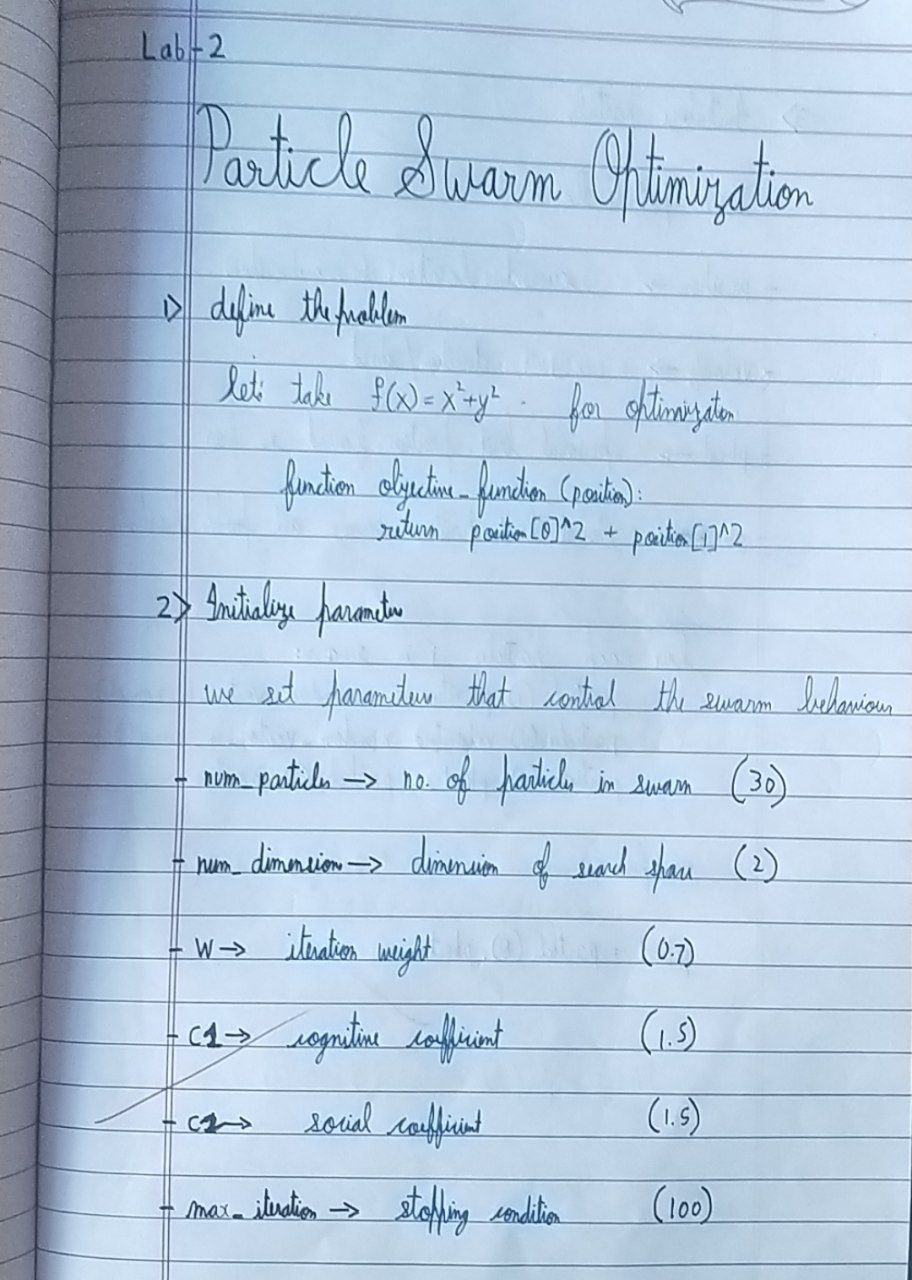 Lab-2
Particle Swarm Optimization
1) define the problem
let's take f(x) = x²+y² . for optimization
function objective_function (position):
return position[0]^2 + position[1]^2
2) Initialize parameters
we set parameters that control the swarm behaviour
- num_particles → no. of particles in swarm (30)
- num_dimension → dimension of search space (2)
- W → iteration weight (0.7)
- C1 → cognitive coefficient (1.5)
- C2 → social coefficient (1.5)
- max_iteration → stopping condition (100)